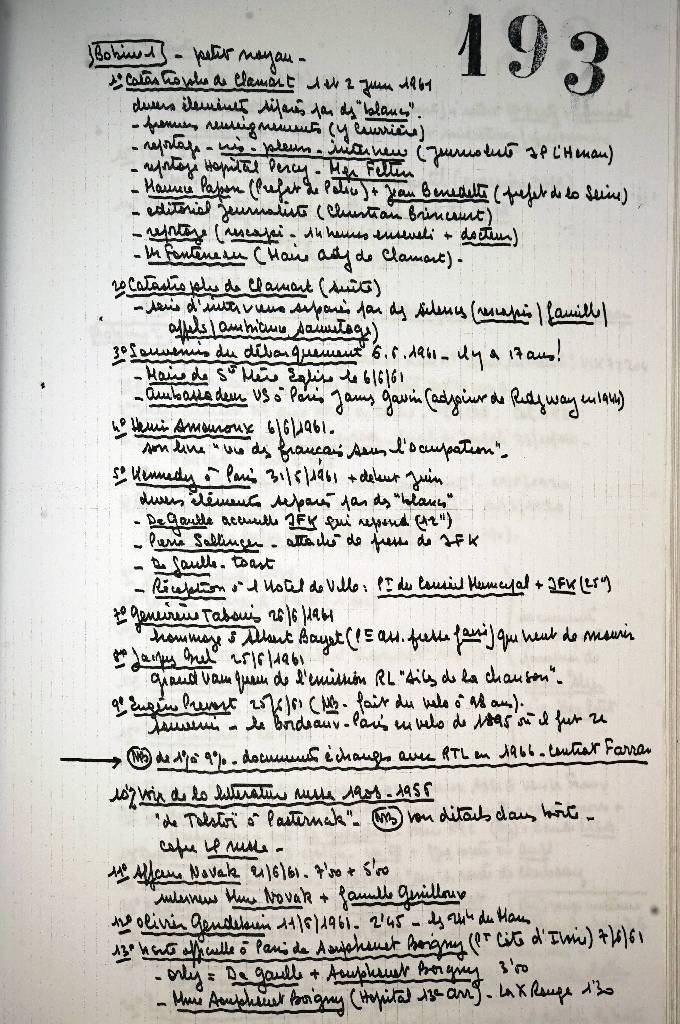 193
Bobine 1 - petit noyau -
1° Catastrophe de Clamart 1 et 2 Juin 1961
divers éléments séparés par des "blancs".
- premiers renseignements (Y Courrière)
- reportage - cris - pleurs - interview (journaliste JP L'Henau)
- reportage Hopital Percy - Mgr Feltin
- Maurice Papon (Prefet de Police) + Jean Benedetti (prefet de la Seine)
- editorial journaliste (Christian Brincourt)
- reportage (rescapé - 14 heures enseveli + docteur)
- Mr Fonteneau (Maire adj de Clamart) -
2° Catastrophe de Clamart (suite)
- série d'interviews séparés par des silences (rescapés / famille /
appels / ambiance sauvetage)
3° Souvenir du débarquement 6.6.1961 - il y a 17 ans!
- Maire de Ste Mère Eglise le 6/6/61
- Ambassadeur US à Paris James Gavin (adjoint de Ridgway en 1944)
4° Henri Amouroux 6/6/1961 -
son livre "vie des français sous l'Occupation" -
5° Kennedy à Paris 31/5/1961 + début juin
divers éléments séparés par des "blancs"
- De Gaulle accueille JFK qui repond (12")
- Pierre Sallinger - attaché de presse de JFK
- De Gaulle - toast
- Réception à l'Hotel de Ville : Pt du Conseil Municipal + JFK (25")
7° Geneviève Tabouis 26/6/1961
hommage à Albert Bayet (Pt ass. presse) qui vient de mourir
8° Jacques Brel 25/6/1961
grand vainqueur de l'émission RL "Ailes de la chanson" -
9° Eugène Prevost 25/6/61 (NB - fait du velo à 98 ans).
souvenir - le Bordeaux-Paris en velo de 1895 où il fut 2e
→ NB de 1°/ à 9°/ - documents échangés avec RTL en 1966 - contrat Farran
10°/ Voix de la littérature russe 1908-1958
"de Tolstoï à Pasternak" - NB voir détails dans boîte -
copie LP russe -
11° Affaire Novak 21/6/61 - 7'00 + 5'00
interview Mme Novak + famille Genilloux
12° Olivier Gendebien 11/6/1961 - 2'45 - les 24h du Mans
13° Visite officielle à Paris de Houphouet Boigny (Pt Côte d'Ivoire) 7/6/61
- Orly = De Gaulle + Houphouet Boigny 3'00
- Mme Houphouet Boigny (Hopital 13e arr) - La X Rouge 1'30